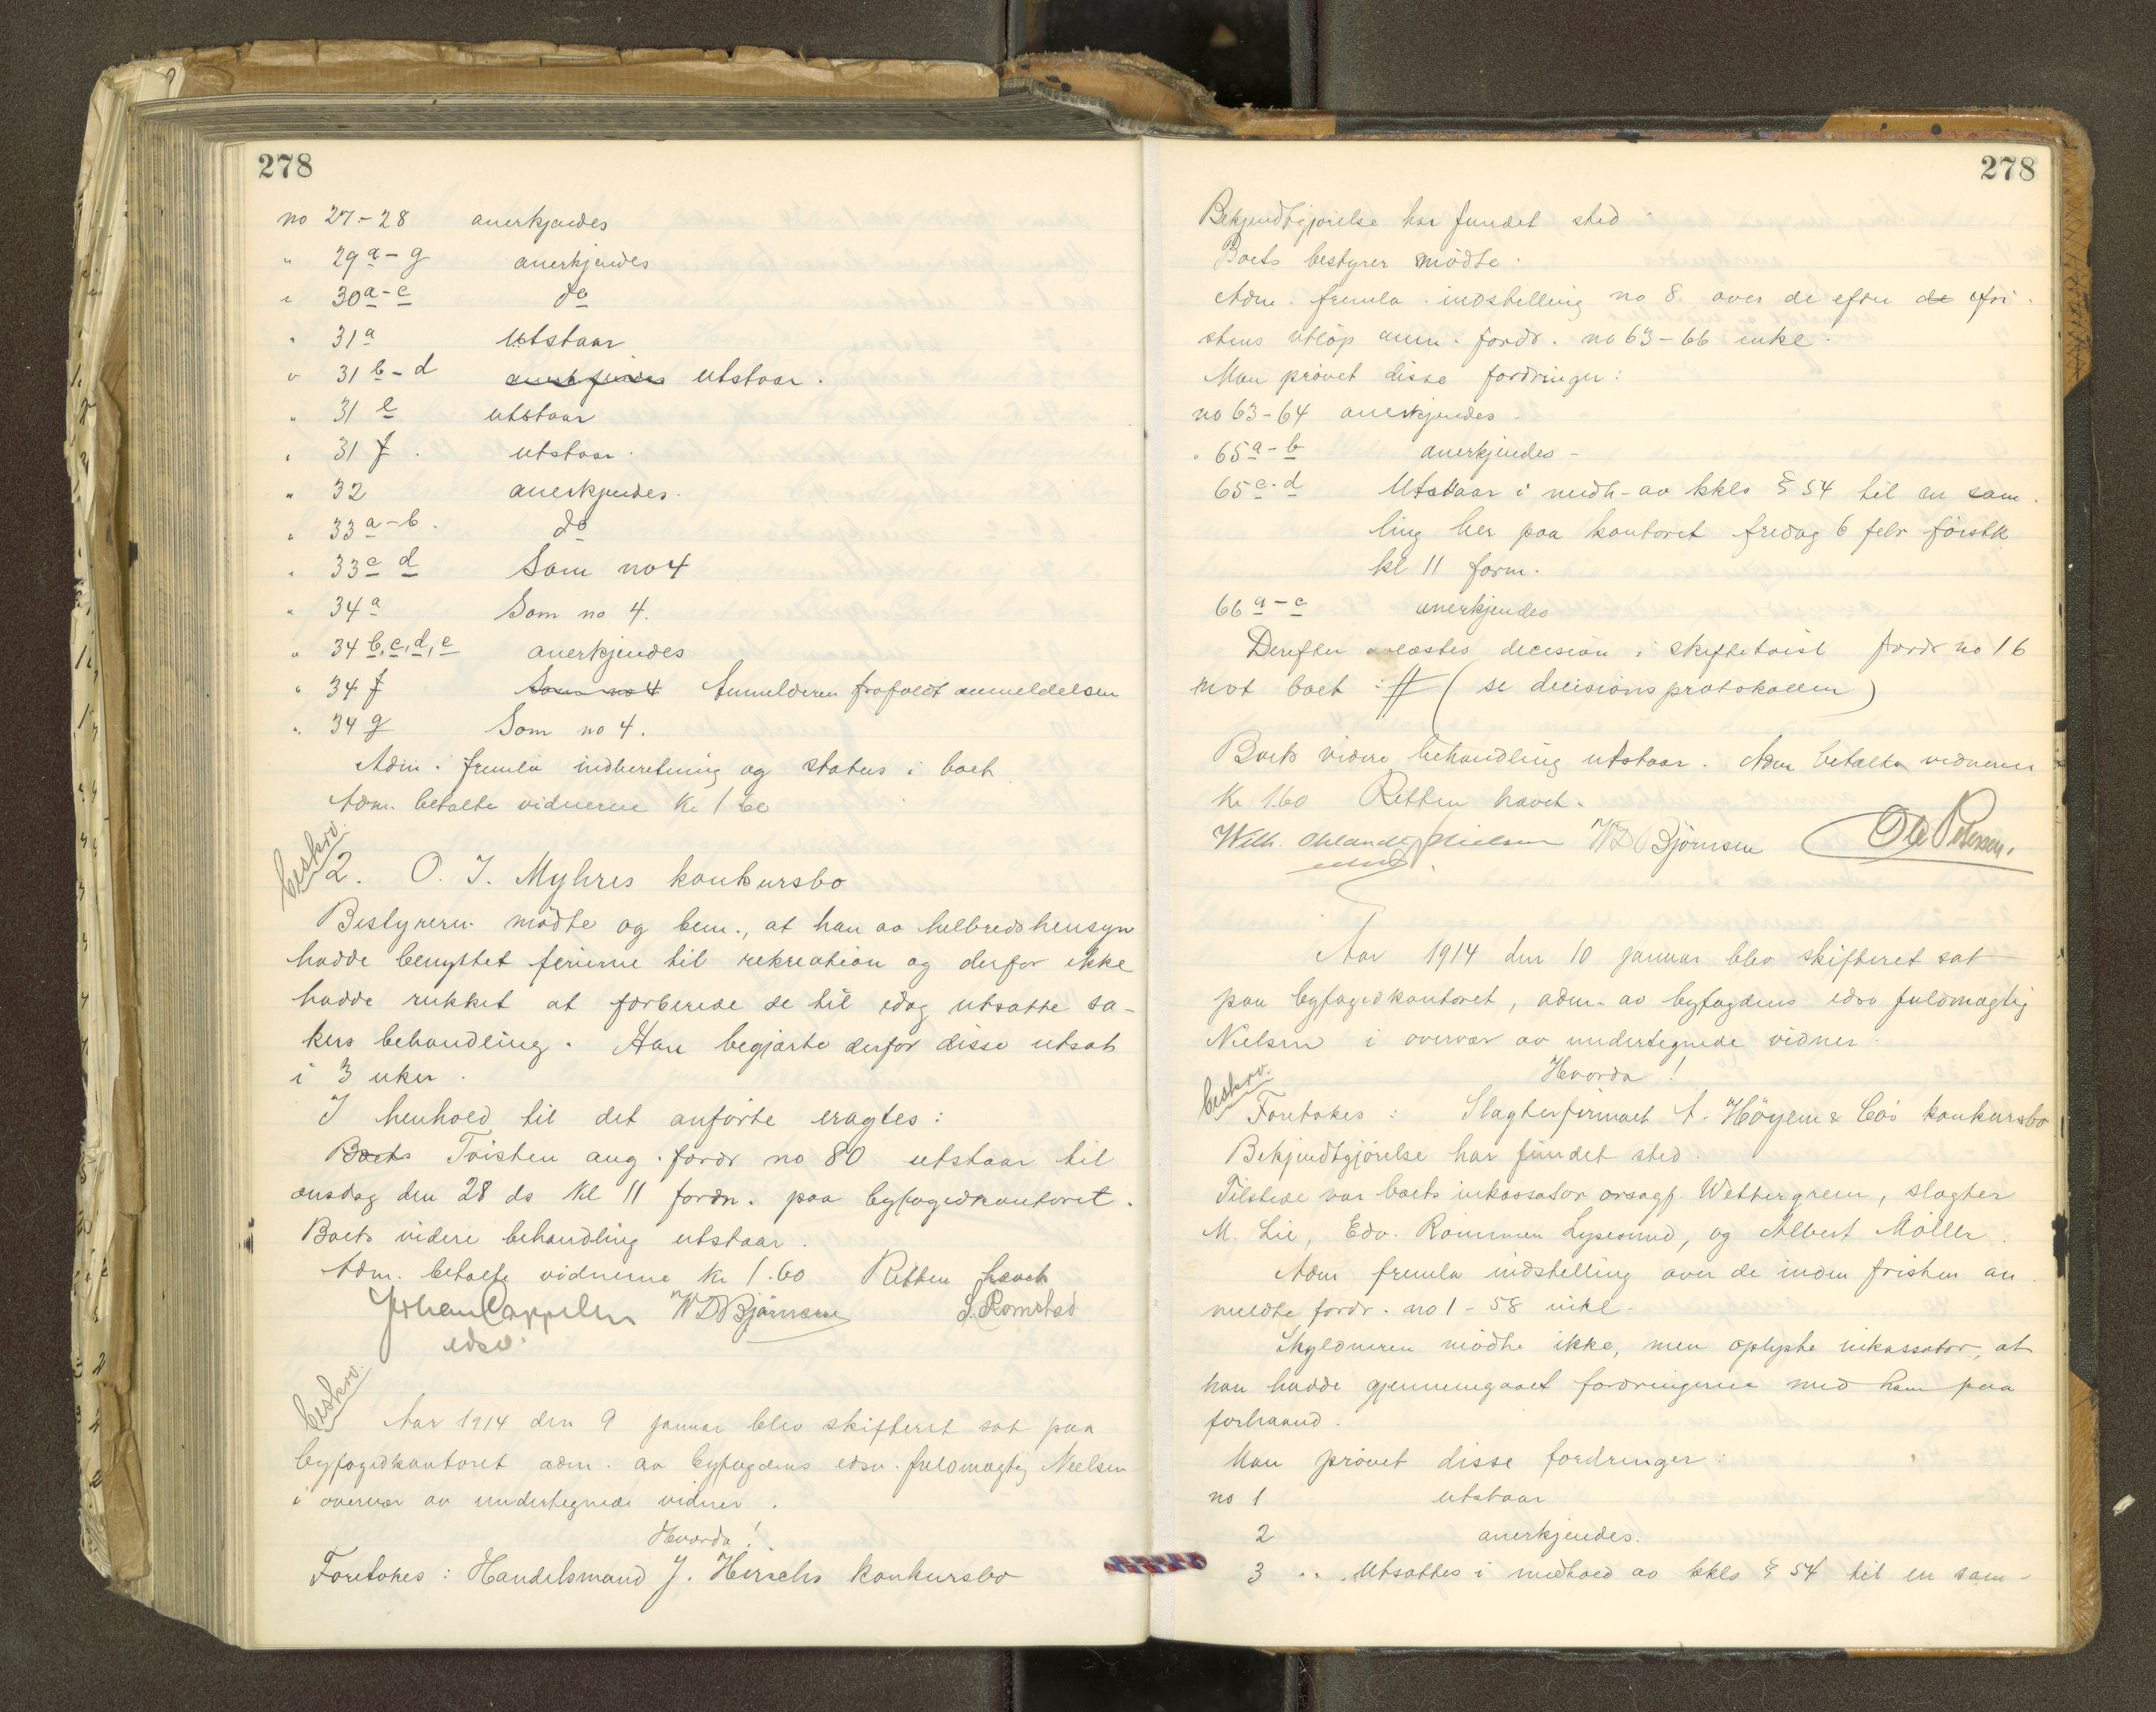 278
no 27-28 anerkjendes
" 29 a-g anerkjendes
" 30 a-e do
" 31 a Utstaar
" 31 b-d anerkjendes utstaar.
" 31 e utstaar
" 31 f. utstaar.
" 32 anerkjendes.
" 33 a-b. do
" 33 c d Som no 4
" 34 a Som no 4.
" 34 b, c, d, e anerkjendes
" 34 f Som no 4 Anmelderen frafaldt anmeldelsen
" 34 g Som no 4.
Adm. fremla indberetning og status i boet
Adm. betalte vidnerne Kr 1.60
beskrv.
2. O. J. Myhres konkursbo
Bestyreren mödte og bem., at han av helbredshensyn
hadde benyttet ferierne til rekreation og derfor ikke
hadde rukket at forberede de til idag utsatte sa-
kers behandling. Han begjærte derfor disse utsat
i 3 uker.
I henhold til det anförte eragtes:
Boets Tvisten ang. fordr no 80 utstaar til
onsdag den 28 ds kl 11 form. paa byfogedkontoret.
Boets videre behandling utstaar.
Adm. betalte vidnerne kr 1.60 Retten hævet
Johan Cappelen W D Bjørnsen S. Romstad
edsv.
beskrv.
Aar 1914 den 9 januar blev skifteret sat paa
byfogedkontoret adm. av byfogdens edsv. fuldmægtig Nielsen
i overvær av undertegnede vidner.
Hvorda!
Foretokes: Handelsmand J. Hirschs konkursbo
278
Bekjendtgjörelse har fundet sted
Boets bestyrer mödte.
Adm. fremla indstilling no 8 over de efter de fri-
stens utlöp anm. fordr. no 63-66 inkl.
Man prövet disse fordringer:
no 63-64 anerkjendes
" 65 a-b anerkjendes
65 c-d Utstaar i medh. av kkls § 54 til en sam-
ling her paa kontoret fredag 6 febr förstk
kl 11 form.
66 a-c anerkjendes
Derefter avlæstes decision i skiftetvist fordr no 16
mot boet: # (se decisionsprotokollen)
Boets videre behandling utstaar. Adm betalte vidnerne
Kr 1.60 Retten hævet.
Wilh. Nielsen W D Bjørnsen Ole Petersen.
Aar 1914 den 10 januar blev skifteret sat
paa byfogedkontoret, adm. av byfogdens edsv fuldmægtig
Nielsen i overvær av undertegnede vidner.
Hvorda!
beskrv.
Foretokes: Slagterfirmaet A. Höyem & Co's konkursbo
Bekjendtgjörelse har fundet sted.
Tilstede var boets inkassator orsagf. Wettergreen, slagter
M. Lie, Edv. Rommen Lysesund, og Albert Möller.
Adm fremla indstilling over de inden fristen an-
meldte fordr. no 1-58 inkl.
Skyldneren mödte ikke, men oplyste inkassator, at
han hadde gjennemgaaet fordringerne med ham paa
forhaand.
Man prövet disse fordringer:
no 1 utstaar
2 anerkjendes.
3 Utsattes i medhold av kkls § 54 til en sam-